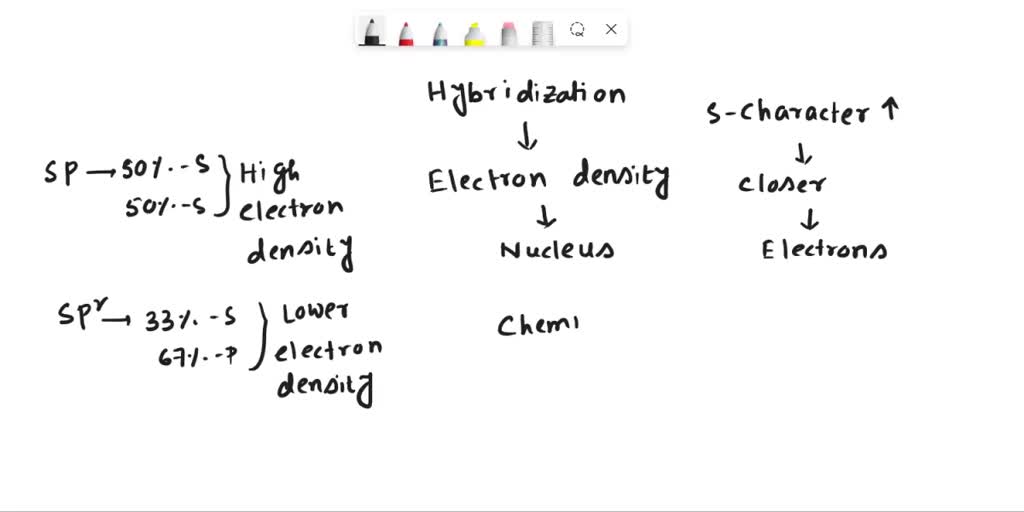 Hybridization
↓
Electron density
↓
Nucleus
S-Character ↑
↓
Closer
↓
Electrons
SP → 50%-S } High
50%-S electron
density
SP² → 33%-S } Lower
67%-P electron
density
Chemi